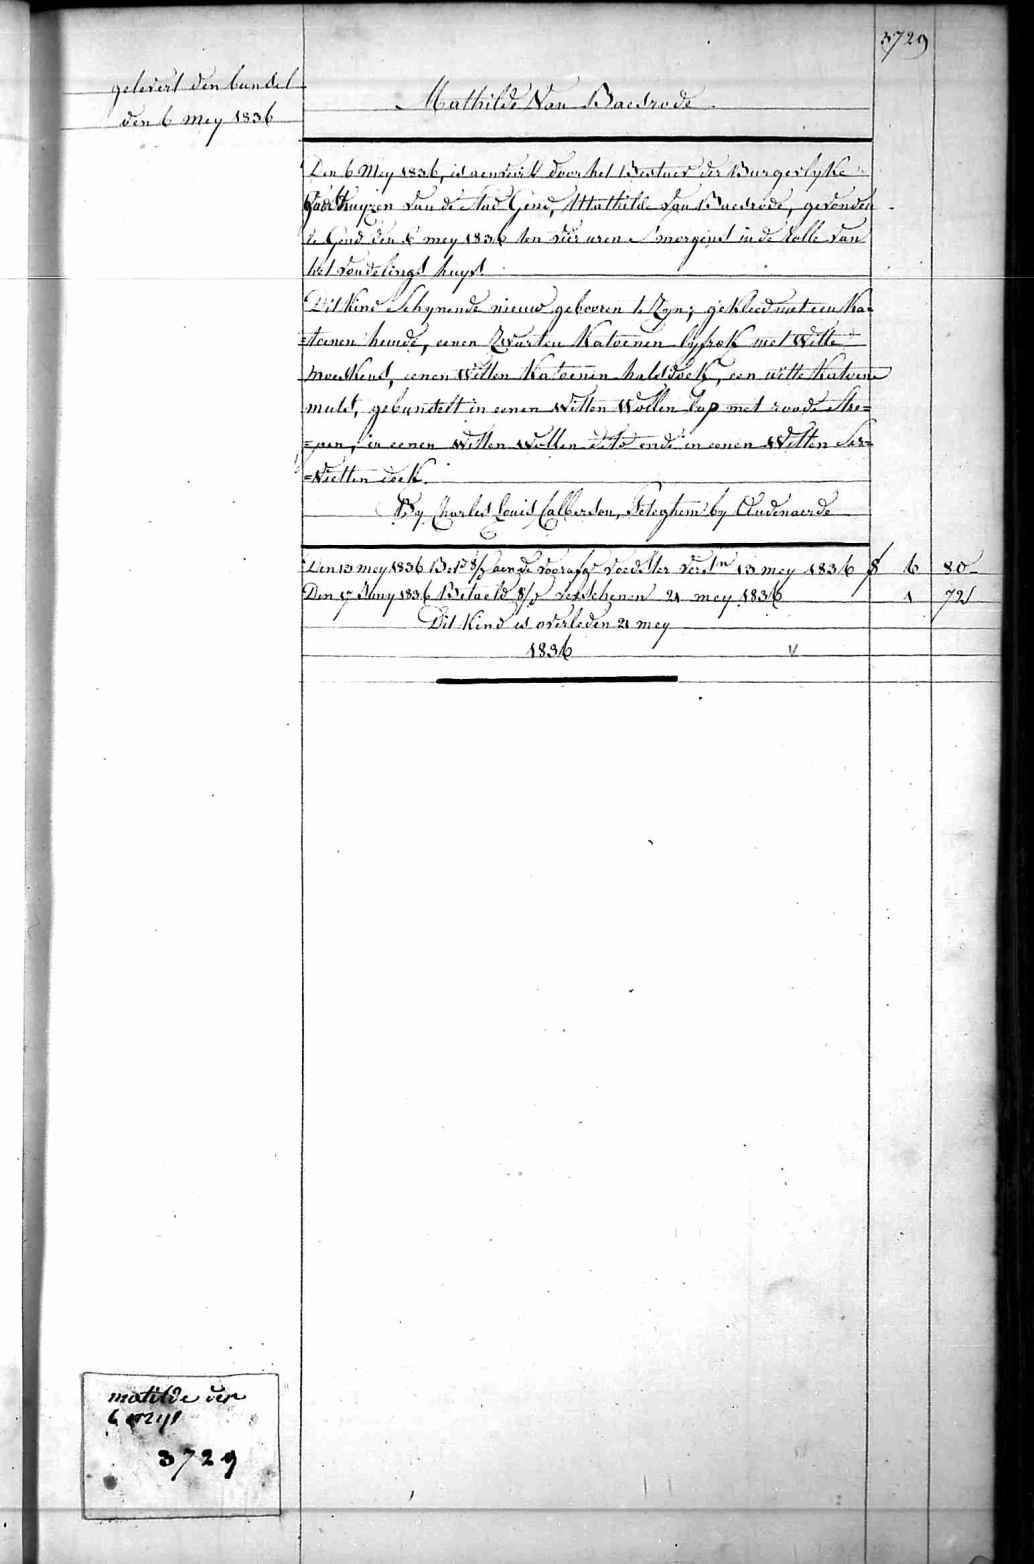 3729
gelevert den bundel
den 6 mey 1836
Mathilde Van Baesrode.
Den 6 Mey 1836, is aenveirt door het Bestuer der Burgerlyke
Godshuyzen van de Stad Gend, Mathilde van Baesrode, gevonden
te Gend den 6 mey 1836 ten vier uren s'morgens in de Rolle van
het vondelings huys.
Dit kind schynende nieuw gebooren te zyn; gekleed met een ka-
=toenen hemde, eenen zwarten katoenen lyfrok met witte
moeskens, eenen witten katoenen halsdoek, een witte katoene
muts, gebunselt in eenen witten wollen lap met roode stre=
=pen, in eenen witten wollen dito ende in eenen witten Ser=
=vietten doek.
By Charles Louis Calberson, Peteghem by Audenaerde
Den 13 mey 1836 Bet.d aen de voorafg. voedster versn 13 mey 1836 6 80
Den 17 Juny 1836 Betaeld verschenen 21 mey 1836 1 72
Dit kind is overleden 21 mey
1836
matilde den
6 mey
3729